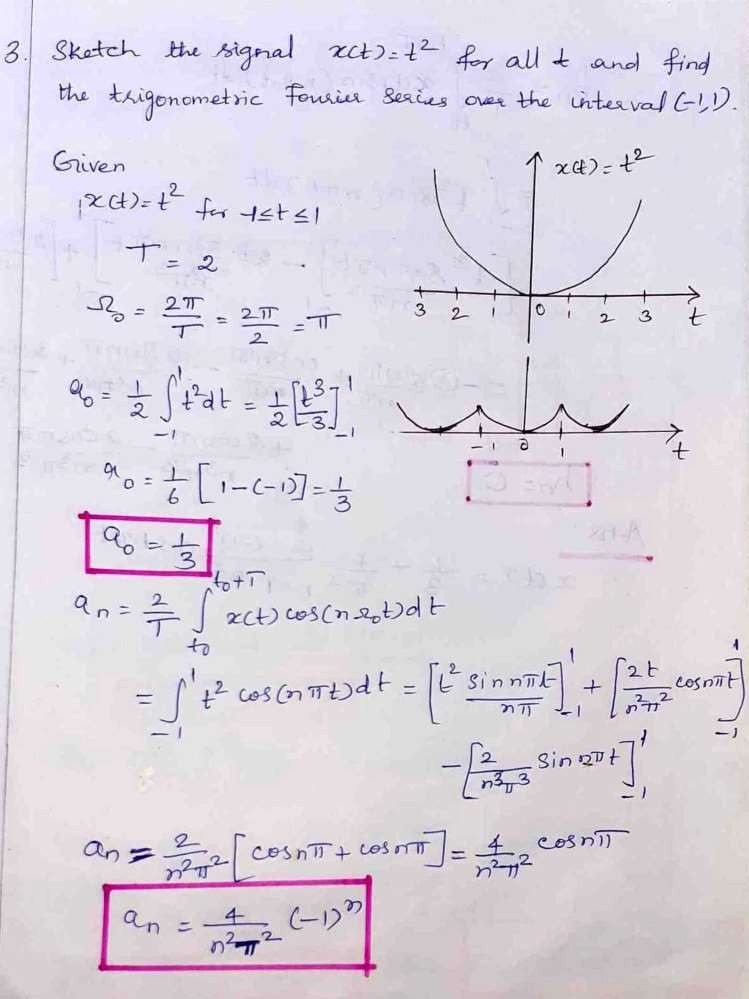 3. Sketch the signal x(t)=t² for all t and find
the trigonometric Fourier Series over the interval (-1,1).
Given
x(t)=t² for -1≤t≤1
T = 2
Ω₀ = 2π/T = 2π/2 = π
x(t)=t²
3 2 1 0 1 2 3 t
-1 0 1 t
a₀ = 1/2 ∫₋₁¹ t²dt = 1/2 [t³/3]₋₁¹
a₀ = 1/6 [1-(-1)] = 1/3
a₀ = 1/3
aₙ = 2/T ∫_{t₀}^{t₀+T} x(t) cos(nΩ₀t)dt
= ∫₋₁¹ t² cos(nπt)dt = [t² sin nπt/nπ]₋₁¹ + [2t/n²π² cosnπt]₋₁¹
- [2/n³π³ sin nπt]₋₁¹
aₙ = 2/n²π² [cosnπ + cosnπ] = 4/n²π² cosnπ
aₙ = 4/n²π² (-1)ⁿ